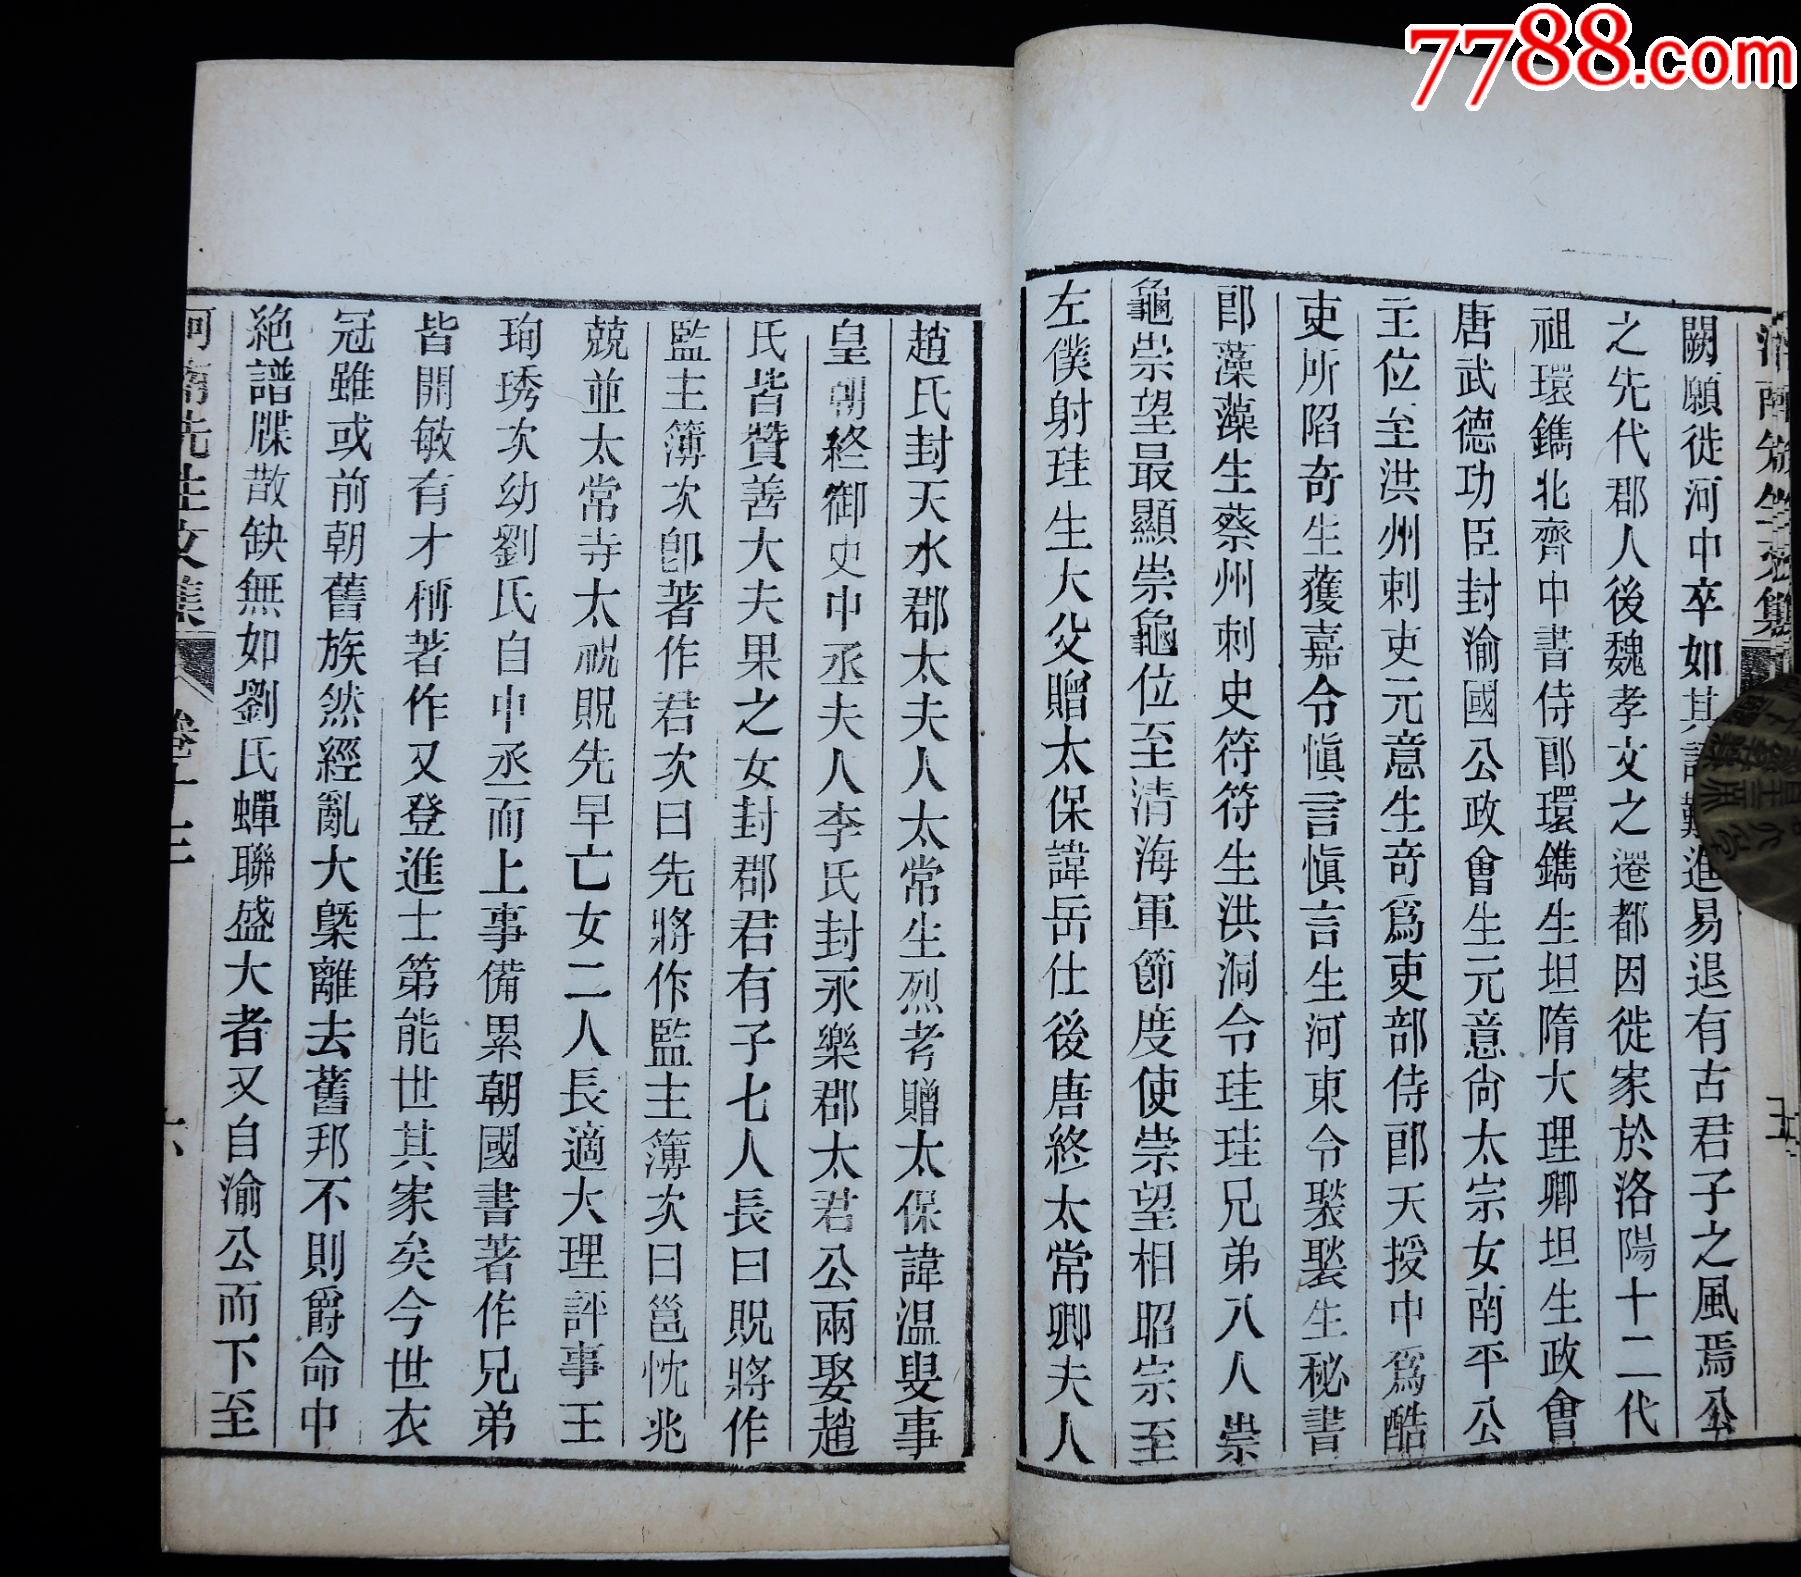 7788.com
闕願徙河中卒如其進易退有古君子之風焉公
之先代郡人後魏孝文之遷都因徙家於洛陽十二代
祖環鐫北齊中書侍郎環鐫生坦隋大理卿坦生政會
唐武德功臣封渝國公政會生元意尙太宗女南平公
主位至洪州刺吏元意生奇爲吏部侍郎天授中爲酷
吏所陷奇生蒦嘉令愼言愼言生河東令聚聚生秘書
郎藻藻生蔡州刺史符符生洪洞令珪珪兄弟八人崇
龜崇望最顯崇龜位至清海軍節度使崇望相昭宗至
左僕射珪生大父贈太保諱岳仕後唐終太常卿夫人
趙氏封天水郡太夫人太常生烈考贈太保諱温叟事
皇朝終御史中丞夫人李氏封永樂郡太君公兩娶趙
氏皆贊善大夫果之女封郡君有子七人長曰貺將作
監主簿次卽著作君次曰先將作監主簿次曰邕忱兆
兢並太常寺太祝貺先早亡女二人長適大理評事王
珣琇次幼劉氏自中丞而上事備累朝國書著作兄弟
皆開敏有才稱著作又登進士第能世其家矣今世衣
冠雖或前朝舊族然經亂大槩離去舊邦不則爵命中
絶譜牒散缺無如劉氏蟬聯盛大者又自渝公而下至
河南先生文集 卷十三 六